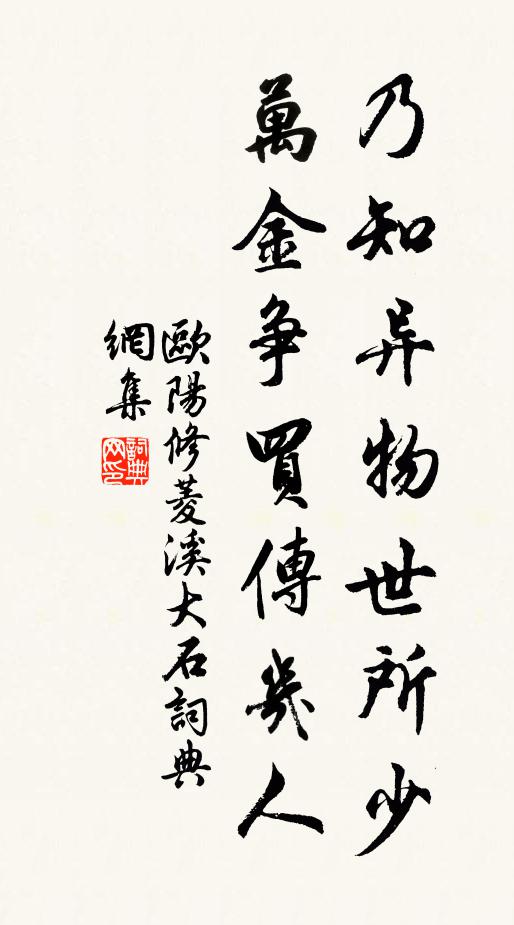 乃知异物世所少
萬金争買傳幾人
歐陽修菱溪大石詞典
網集
詞典网印